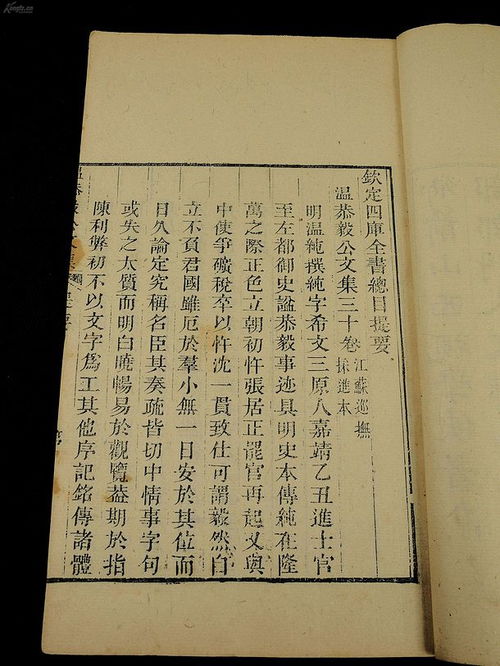 欽定四庫全書總目提要
溫恭毅公文集三十卷 江蘇巡撫採進本
明溫純撰純字希文三原人嘉靖乙丑進士官
至左都御史諡恭毅事迹具明史本傳純在隆
萬之際正色立朝初忤張居正罷官再起又與
中使爭礦稅卒以忤沈一貫致仕可謂毅然自
立不負君國雖厄於羣小無一日安於其位而
日久論定究稱名臣其奏疏皆切中情事字句
或失之太質而明白曉暢易於觀覽葢期於指
陳利弊初不以文字爲工其他序記銘傳諸體